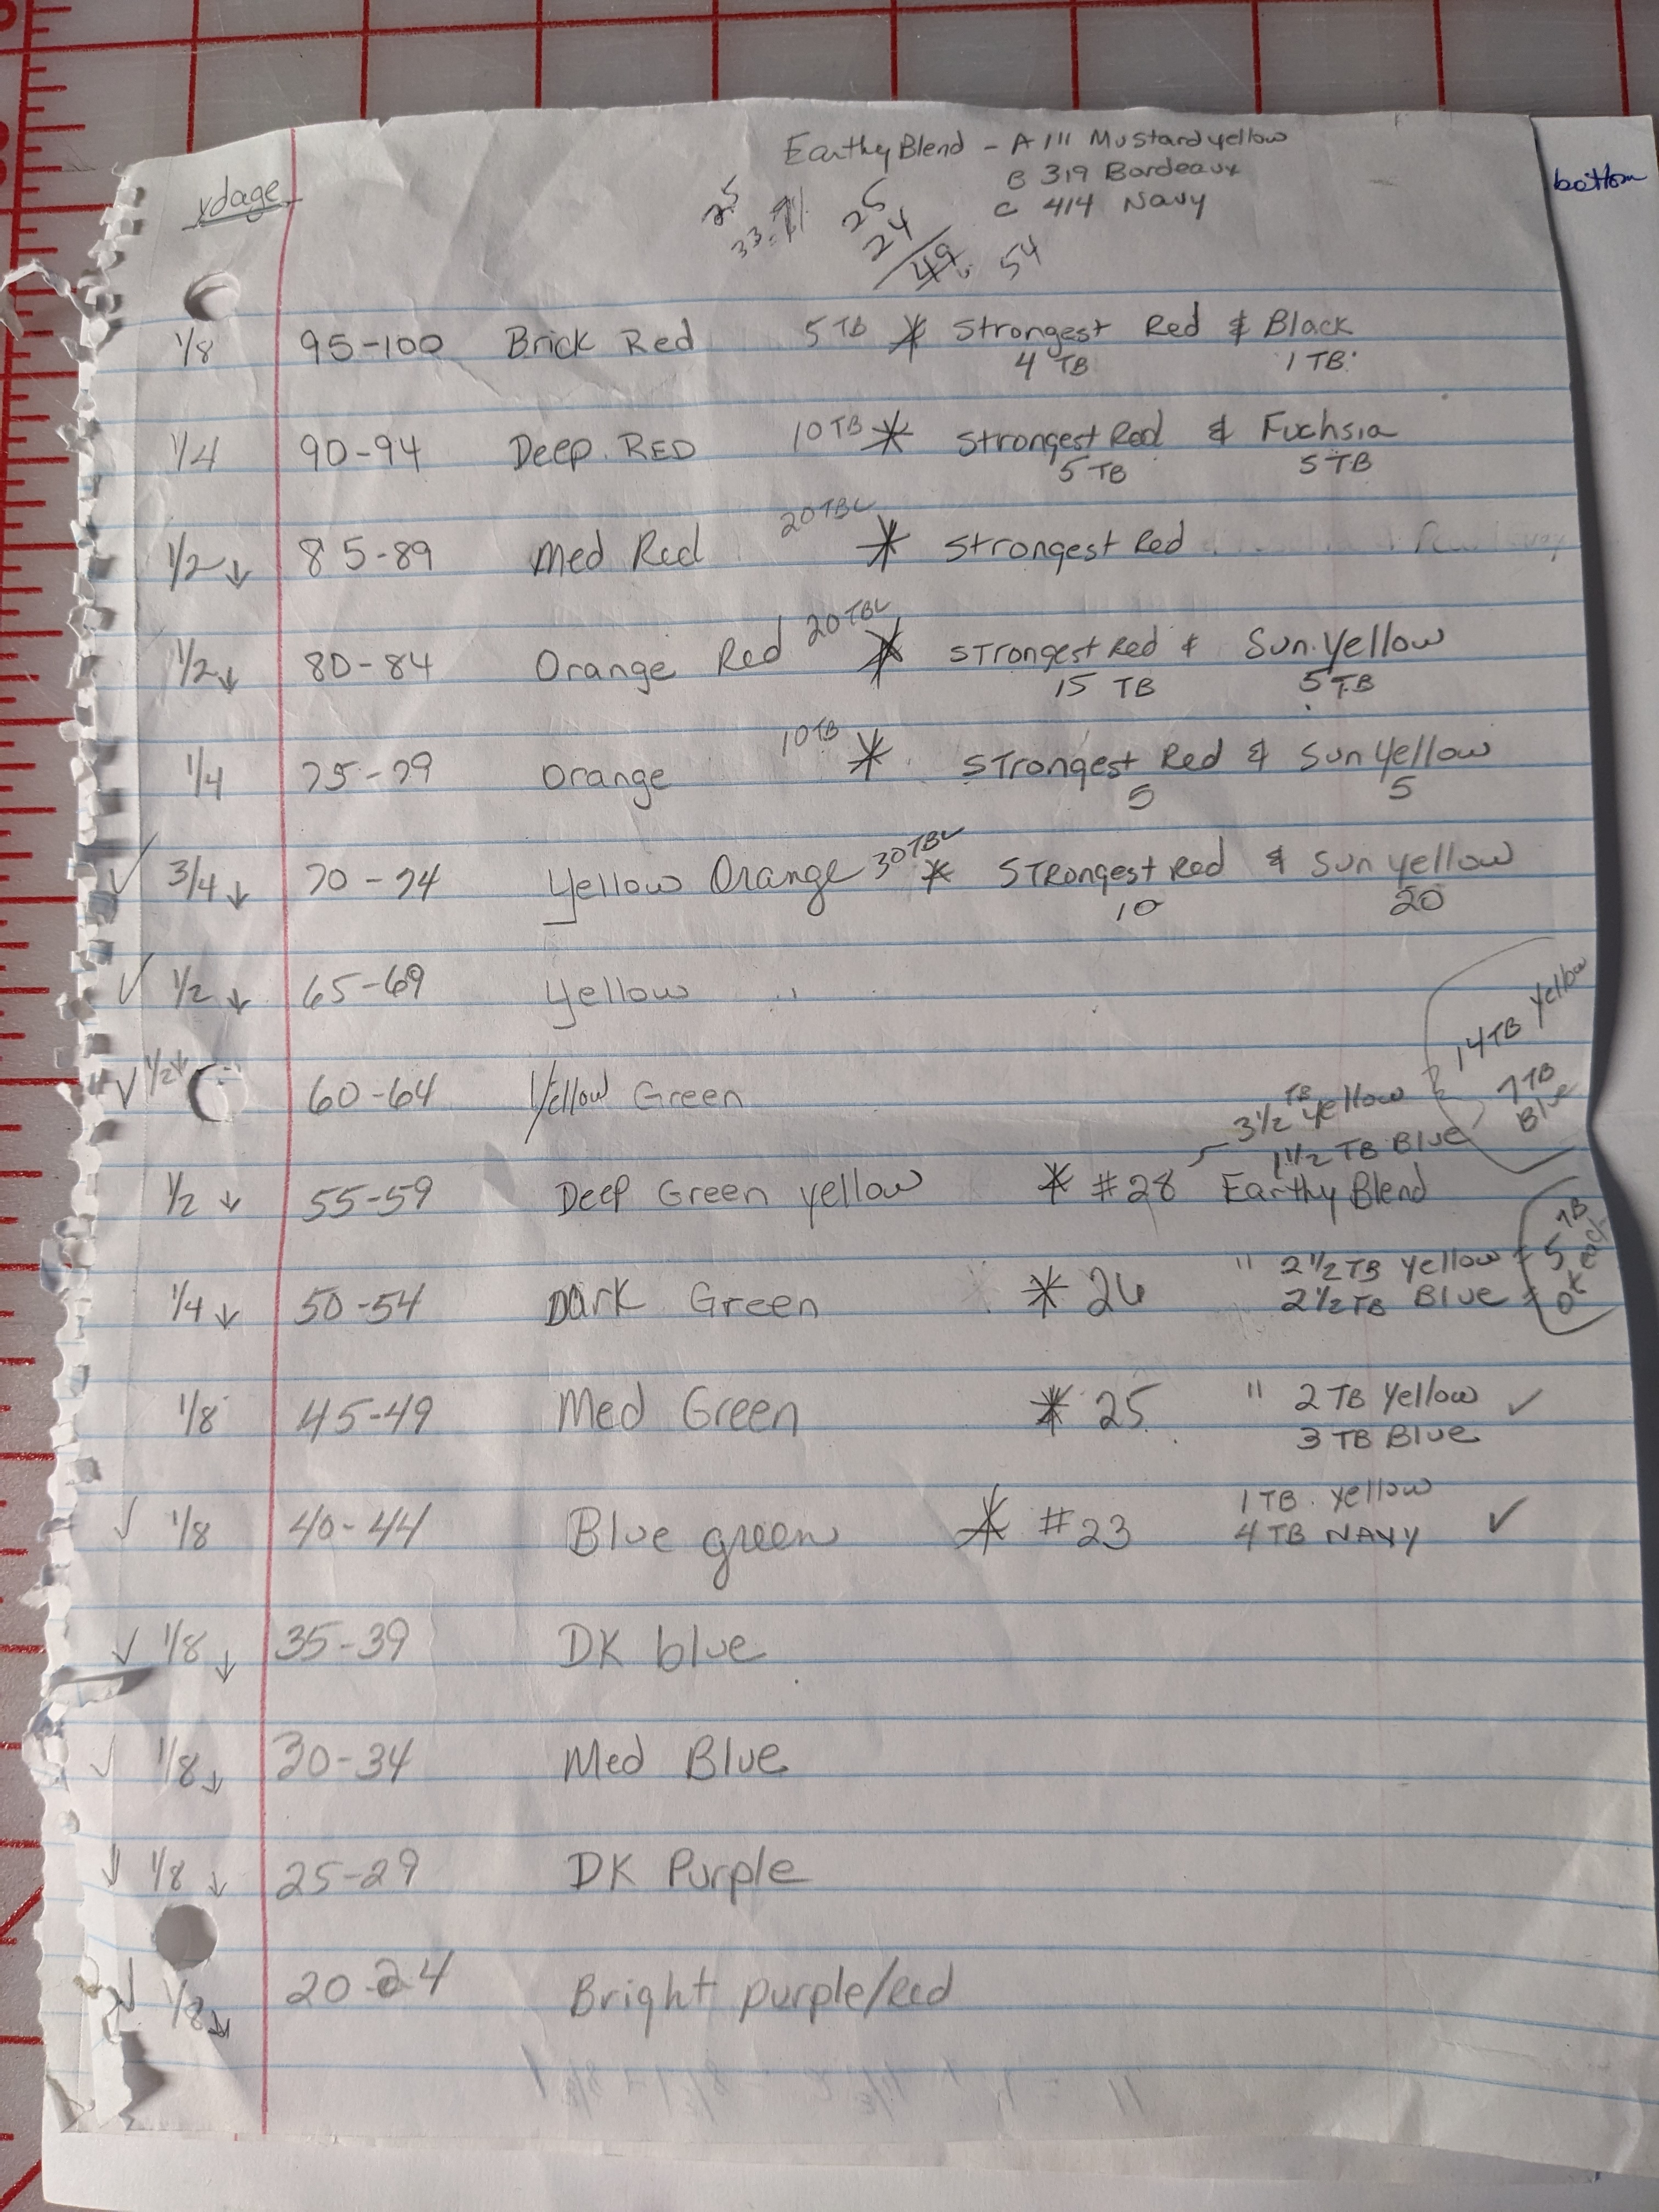 Earthy Blend - A 111 Mustard yellow
B 319 Bordeaux
C 414 Navy
bottom
ydage
25
33.
25
24
49
54
1/8 95-100 Brick Red 5 TB * Strongest Red & Black
4 TB 1 TB
1/4 90-94 Deep RED 10 TB * Strongest Red & Fuchsia
5 TB 5 TB
1/2 ↓ 85-89 Med Red 20 TBL * Strongest Red
1/2 ↓ 80-84 Orange Red 20 TBL * Strongest Red & Sun Yellow
15 TB 5 TB
1/4 75-79 Orange 10 TB * Strongest Red & Sun Yellow
5 5
✓ 3/4 ↓ 70-74 Yellow Orange 30 TBL * Strongest Red & Sun yellow
10 20
✓ 1/2 ↓ 65-69 Yellow
✓ 1/2 ↓ 60-64 Yellow Green
14 TB Yellow
7 TB Blue
3 1/2 TB yellow
1 1/2 TB Blue
1/2 ↓ 55-59 Deep Green yellow * #28 Earthy Blend
1/4 ↓ 50-54 Dark Green * 26 " 2 1/2 TB Yellow
2 1/2 TB Blue
5 TB
1/8 45-49 Med Green * 25 " 2 TB Yellow ✓
3 TB Blue
✓ 1/8 40-44 Blue green * #23 1 TB. yellow
4 TB NAVY ✓
✓ 1/8 ↓ 35-39 DK blue
✓ 1/8 ↓ 30-34 Med Blue
✓ 1/8 ↓ 25-29 DK Purple
✓ 1/8 ↓ 20-24 Bright purple/Red